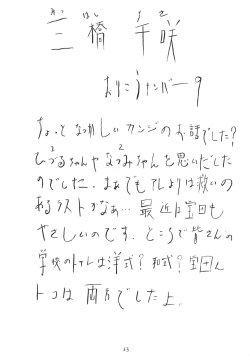 みはし ちさ
三橋 千咲
おりこうナンバー9
ちょっとなつかしいカンジのお話でした?
ひづるちゃんやなつみちゃんを思いだした
のでした。まぁでもアレよりは救いの
あるラストかなぁ…最近は宝田も
やさしいのです。ところで皆さんの
学校のトイレは洋式?和式?宝田ん
トコは両方でしたよ。
23